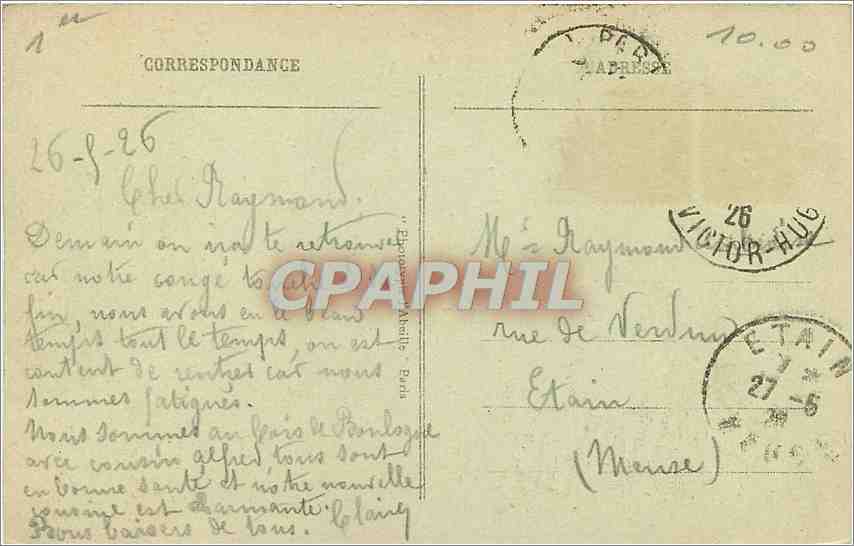 1er
10.00
CORRESPONDANCE
L'ADRESSE
26-5-26
Cher Raymond,
Demain on ira te retrouver
car notre congé
fin, nous avons eu le beau
temps tout le temps, on est
content de rentrer car nous
sommes fatigués.
Nous sommes au bois de Boulogne
avec cousin alfred tous sont
en bonne santé et notre nouvelle
cousine est charmante.
Bons baisers de tous. Claire
"Phototypie "Abeille" - Paris
CPAPHIL
Raymond
rue de Verdun
Etain
(Meuse)
26
VICTOR-HUG
ETAIN
27 -5
26